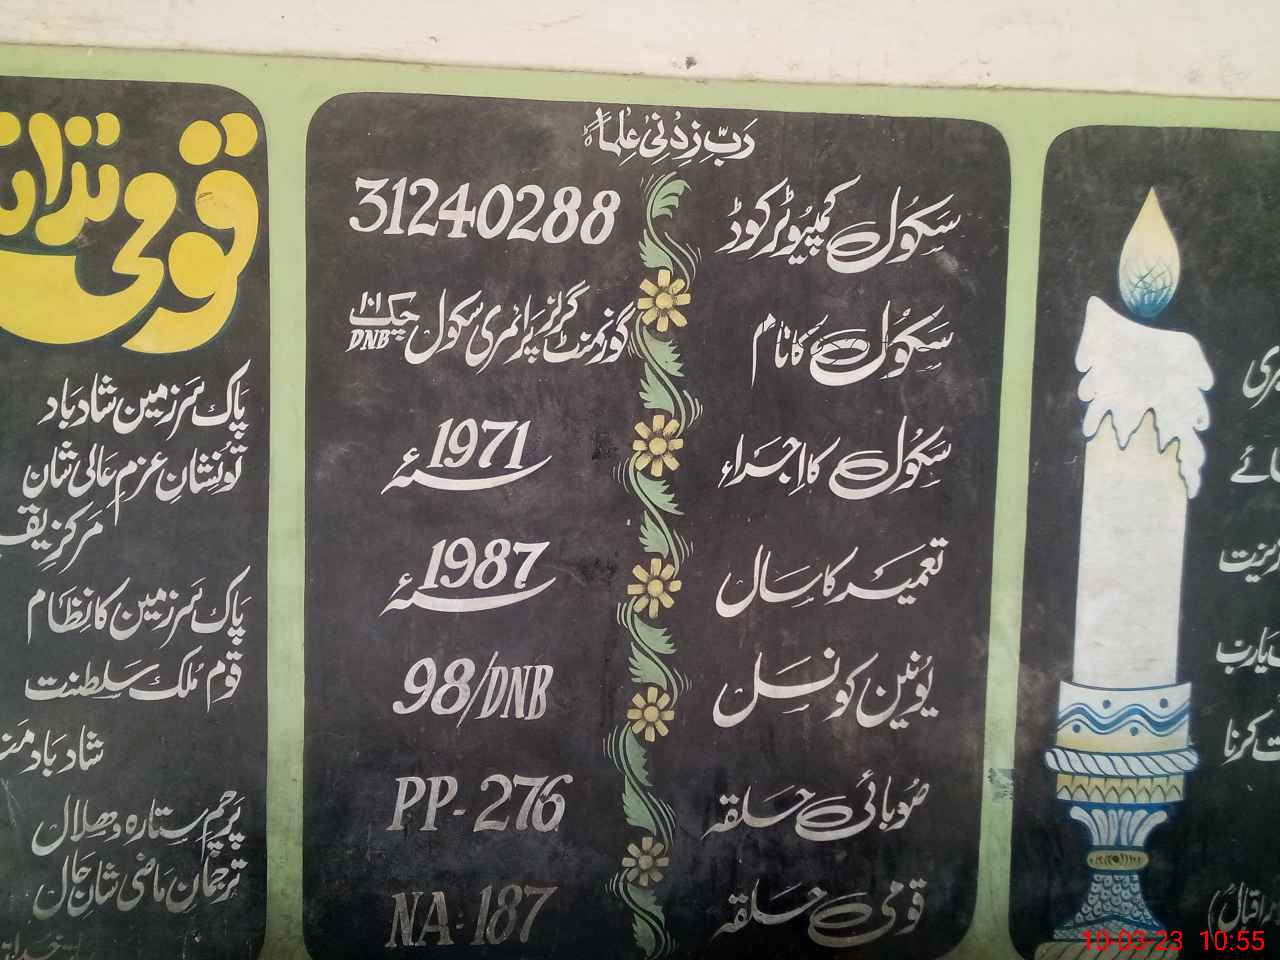 رَبِّ زِدْنِیْ عِلْماً
سکول کمپیوٹر کوڈ 31240288
سکول کا نام گورنمنٹ گرلز پرائمری سکول چک 101 DNB
سکول کا اجراء 1971ء
تعمیر کا سال 1987ء
یونین کونسل 98/DNB
صوبائی حلقہ PP-276
قومی حلقہ NA-187
قومی ترانہ
پاک سرزمین شاد باد
تو نشانِ عزمِ عالی شان
مرکز یق
پاک سرزمین کا نظام
قوم ملک سلطنت
شاد باد من
پرچم ستارہ و ھلال
ترجمانِ ماضی شانِ حال
یارب
ت کرنا
اقبال)
10-03-23 10:55